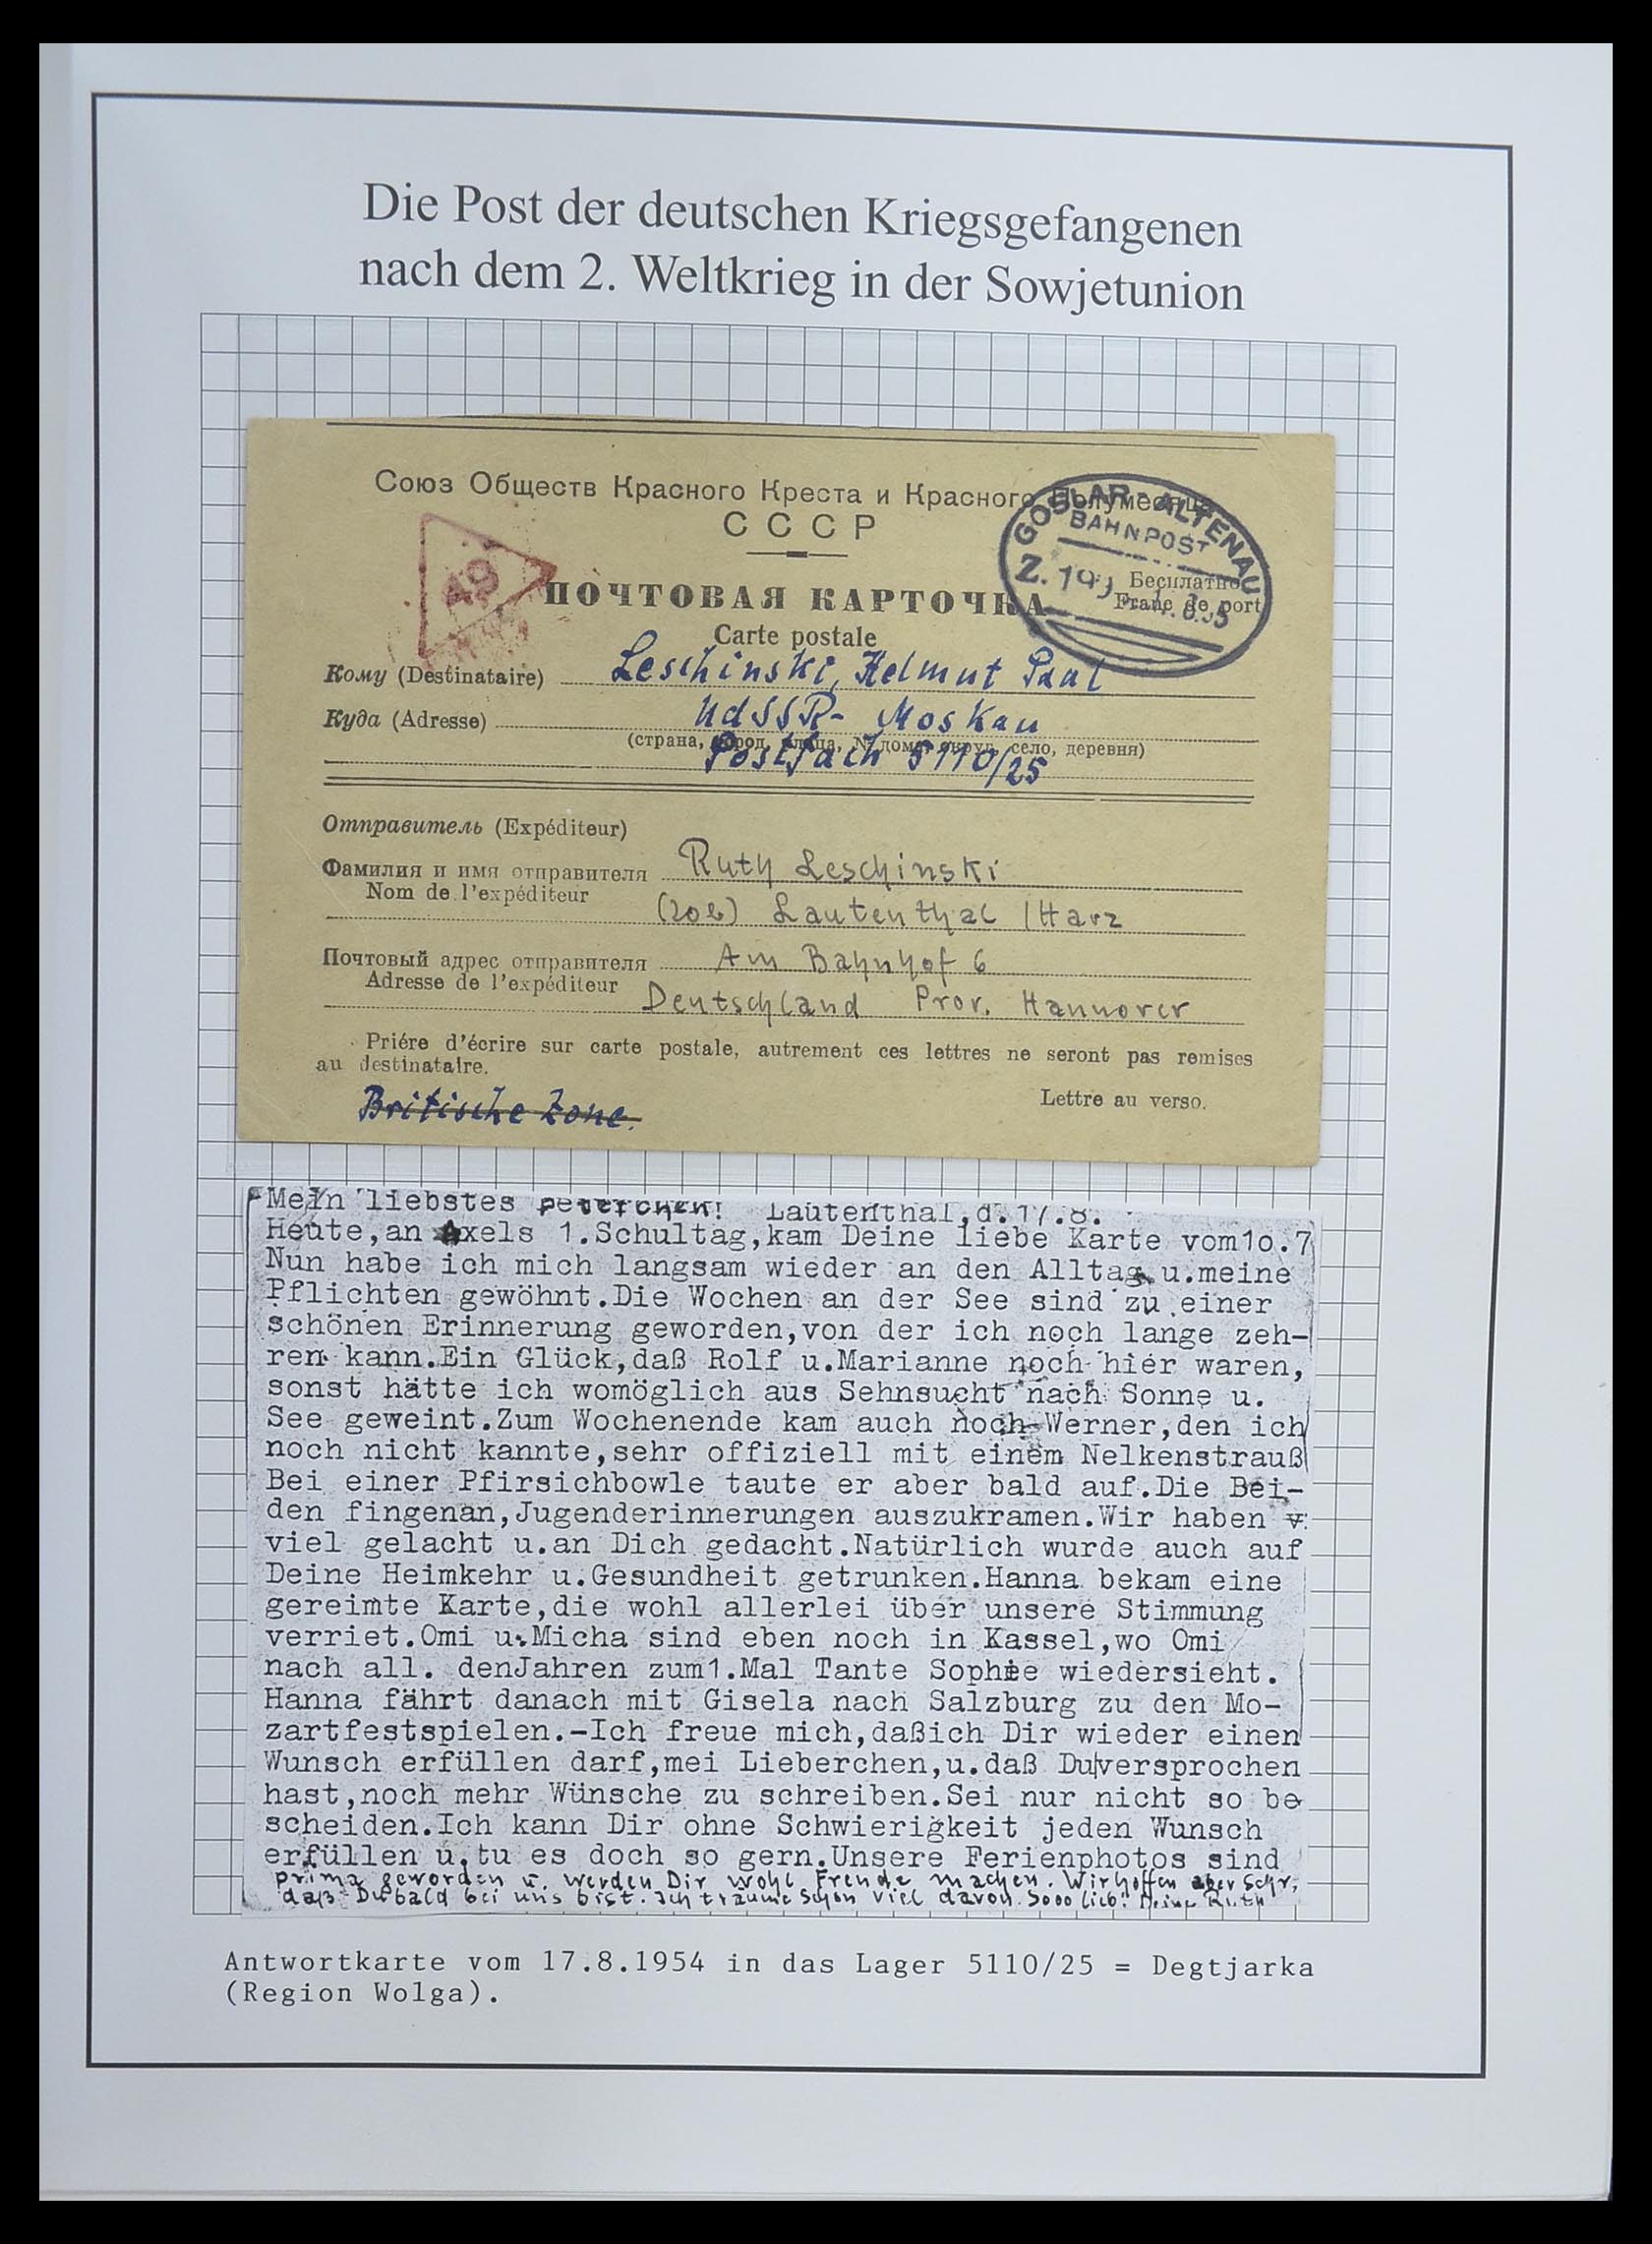 Die Post der deutschen Kriegsgefangenen
nach dem 2. Weltkrieg in der Sowjetunion
Союз Обществ Красного Креста и Красного Полумесяца
С С С Р
GOSLAR - ALTENAU
BAHNPOST
Z.
49
ПОЧТОВАЯ КАРТОЧКА
Бесплатно
Franc de port
Carte postale
Кому (Destinataire) Leschinski, Helmut Paul
Куда (Adresse) UdSSR- Moskau
(страна, город, улица, № дома, округ, село, деревня)
Postfach 5110/25
Отправитель (Expéditeur)
Фамилия и имя отправителя Ruth Leschinski
Nom de l'expéditeur
(20b) Lautenthal / Harz
Почтовый адрес отправителя Am Bahnhof 6
Adresse de l'expéditeur
Deutschland Prov. Hannover
Priére d'écrire sur carte postale, autrement ces lettres ne seront pas remises
au destinataire.
Britische Zone.
Lettre au verso.
Mein liebstes Peterchen! Lautenthal,d.17.8.
Heute,an Axels 1.Schultag,kam Deine liebe Karte vom1o.7
Nun habe ich mich langsam wieder an den Alltag u.meine
Pflichten gewöhnt.Die Wochen an der See sind zu einer
schönen Erinnerung geworden,von der ich noch lange zeh-
ren kann.Ein Glück,daß Rolf u.Marianne noch hier waren,
sonst hätte ich womöglich aus Sehnsucht nach Sonne u.
See geweint.Zum Wochenende kam auch noch Werner,den ich
noch nicht kannte,sehr offiziell mit einem Nelkenstrauß
Bei einer Pfirsichbowle taute er aber bald auf.Die Bei-
den fingenan,Jugenderinnerungen auszukramen.Wir haben v
viel gelacht u.an Dich gedacht.Natürlich wurde auch auf
Deine Heimkehr u.Gesundheit getrunken.Hanna bekam eine
gereimte Karte,die wohl allerlei über unsere Stimmung
verriet.Omi u.Micha sind eben noch in Kassel,wo Omi
nach all. denJahren zum1.Mal Tante Sophie wiedersieht.
Hanna fährt danach mit Gisela nach Salzburg zu den Mo-
zartfestspielen.-Ich freue mich,daßich Dir wieder einen
Wunsch erfüllen darf,mei Lieberchen,u.daß Du versprochen
hast,noch mehr Wünsche zu schreiben.Sei nur nicht so be
scheiden.Ich kann Dir ohne Schwierigkeit jeden Wunsch
erfüllen u.tu es doch so gern.Unsere Ferienphotos sind
prima geworden u. werden Dir wohl Freude machen. Wir hoffen aber sehr,
daß Du bald bei uns bist. Ich träume schon viel davon. Sooo lieb! Deine Ruth
Antwortkarte vom 17.8.1954 in das Lager 5110/25 = Degtjarka
(Region Wolga).